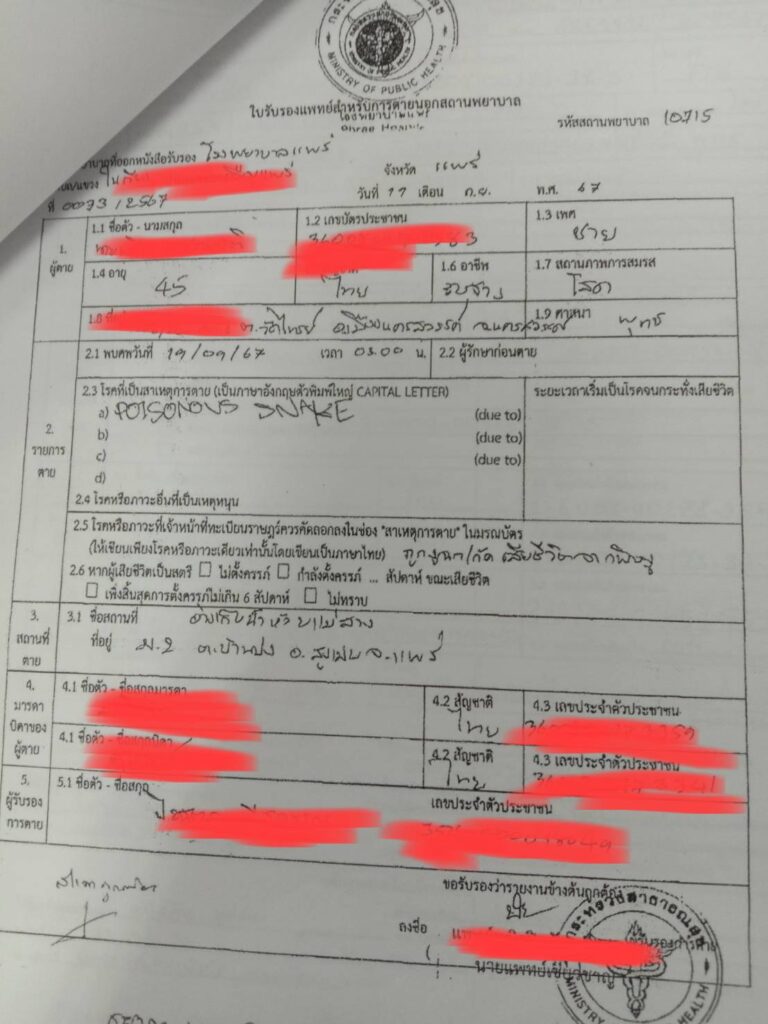 กระทรวงสาธารณสุข
MINISTRY OF PUBLIC HEALTH
ใบรับรองแพทย์สำหรับการตายนอกสถานพยาบาล
โรงพยาบาลแพร่
Phrae
รหัสสถานพยาบาล 10715
ที่ออกหนังสือรับรอง โรงพยาบาลแพร่ จังหวัด แพร่
ที่ 0093/2567 วันที่ 17 เดือน ก.ย. พ.ศ. 67
1. ผู้ตาย
1.1 ชื่อตัว - นามสกุล
1.2 เลขบัตรประชาชน
1.3 เพศ ชาย
1.4 อายุ 45
ไทย
1.6 อาชีพ
1.7 สถานภาพการสมรส โสด
1.8 อ.เมืองนครสวรรค์ จ.นครสวรรค์
1.9 ศาสนา พุทธ
2. รายการตาย
2.1 พบศพวันที่ 17/09/67 เวลา 03.00 น.
2.2 ผู้รักษาก่อนตาย
2.3 โรคที่เป็นสาเหตุการตาย (เป็นภาษาอังกฤษตัวพิมพ์ใหญ่ CAPITAL LETTER)
ระยะเวลาเริ่มเป็นโรคจนกระทั่งเสียชีวิต
a) POISONOUS SNAKE (due to)
b) (due to)
c) (due to)
d)
2.4 โรคหรือภาวะอื่นที่เป็นเหตุหนุน
2.5 โรคหรือภาวะที่เจ้าหน้าที่ทะเบียนราษฎร์ควรคัดลอกลงในช่อง "สาเหตุการตาย" ในมรณบัตร
(ให้เขียนเพียงโรคหรือภาวะเดียวเท่านั้นโดยเขียนเป็นภาษาไทย) ถูกงูเห่ากัด เสียชีวิตจากพิษงู
2.6 หากผู้เสียชีวิตเป็นสตรี ☐ ไม่ตั้งครรภ์ ☐ กำลังตั้งครรภ์ ... สัปดาห์ ขณะเสียชีวิต
☐ เพิ่งสิ้นสุดการตั้งครรภ์ไม่เกิน 6 สัปดาห์ ☐ ไม่ทราบ
3. สถานที่ตาย
3.1 ชื่อสถานที่ อ่างเก็บน้ำห้วยแม่สาง
ที่อยู่ ม.2 ต.บ้านปง อ.สูงเม่น จ.แพร่
4. มารดาบิดาของผู้ตาย
4.1 ชื่อตัว - ชื่อสกุลมารดา
4.2 สัญชาติ ไทย
4.3 เลขประจำตัวประชาชน
4.1 ชื่อตัว - ชื่อสกุลบิดา
4.2 สัญชาติ ไทย
4.3 เลขประจำตัวประชาชน
5. ผู้รับรองการตาย
5.1 ชื่อตัว - ชื่อสกุล
เลขประจำตัวประชาชน
ขอรับรองว่ารายงานข้างต้นถูกต้อง
สำเนาถูกต้อง
ลงชื่อ ผู้รับรองการตาย
นายแพทย์เชี่ยวชาญ
กระทรวงสาธารณสุข